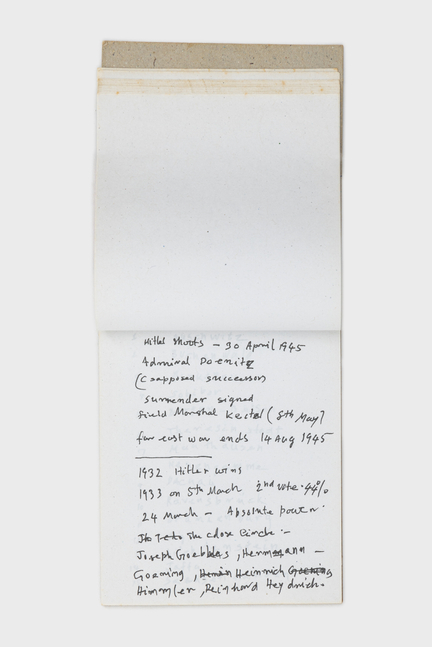 Hitler shoots – 30 April 1945
Admiral Doenitz
(supposed successor)
surrender signed
Field Marshal Keitel (8th May)
far east war ends 14 Aug 1945
1932 Hitler wins
1933 on 5th March 2nd vote. 44%
24 March – Absolute power.
the close Circle :–
Joseph Goebbels, Hermann –
Goering, Heinrich
Himmler, Reinhard Heydrich.